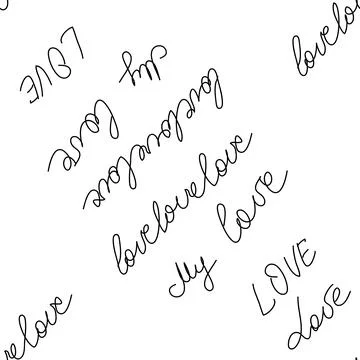 lovelo
LOVE
My
love
lovelovelove
lovelovelove
love
My
LOVE
Love
elove